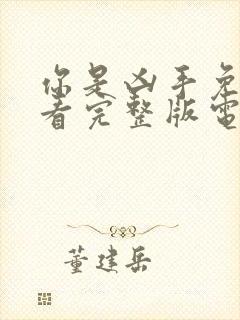 你是凶手免
看完整版電
董建岳